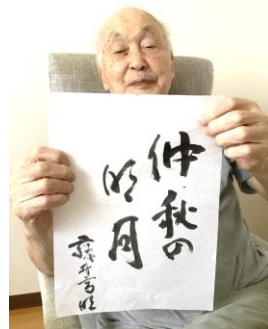 仲秋の
明月